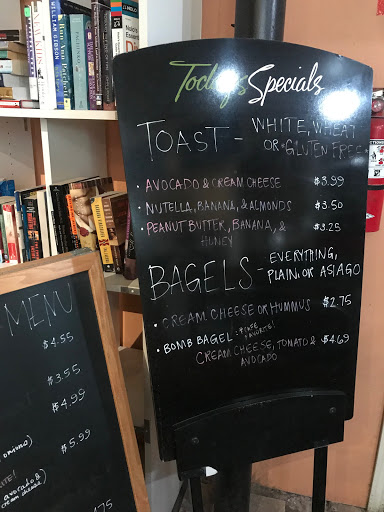 Today's Specials
TOAST - WHITE, WHEAT
OR *GLUTEN FREE*
• AVOCADO & CREAM CHEESE $3.99
• NUTELLA, BANANA, & ALMONDS $3.50
• PEANUT BUTTER, BANANA, & $3.25
HONEY
BAGELS - EVERYTHING,
PLAIN, OR ASIAGO
• CREAM CHEESE OR HUMMUS $2.75
• BOMB BAGEL: *CAFE
FAVORITE!
CREAM CHEESE, TOMATO & $4.69
AVOCADO
MENU
$4.55
$3.55
$4.99
$5.99
avocado &
cream cheese)
4.75
WILLIAM GIBSON
Ann Patchett